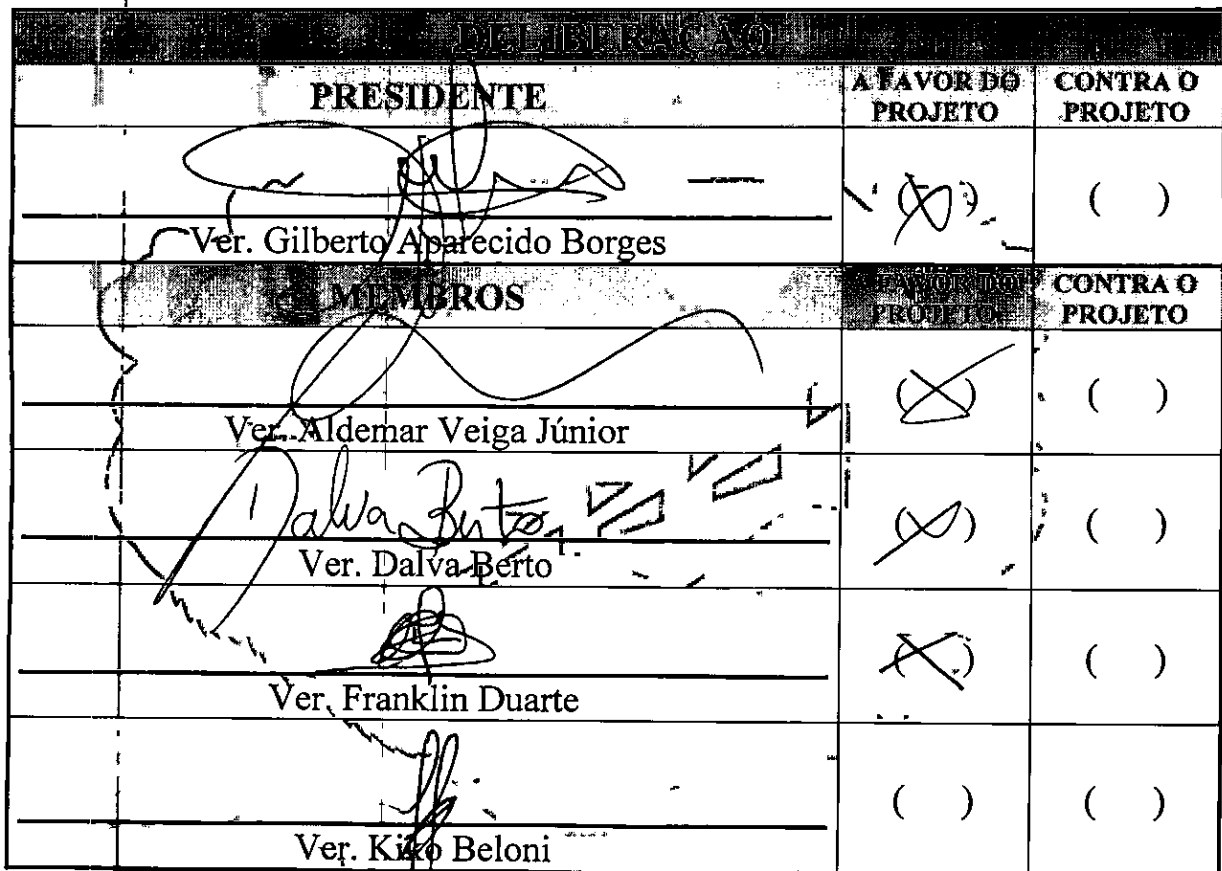 DELIBERAÇÃO
PRESIDENTE
A FAVOR DO PROJETO
CONTRA O PROJETO
(X)
( )
Ver. Gilberto Aparecido Borges
MEMBROS
A FAVOR DO PROJETO
CONTRA O PROJETO
(X)
( )
Ver. Aldemar Veiga Júnior
Dalva Berto
(X)
( )
Ver. Dalva Berto
(X)
( )
Ver. Franklin Duarte
( )
( )
Ver. Kiko Beloni